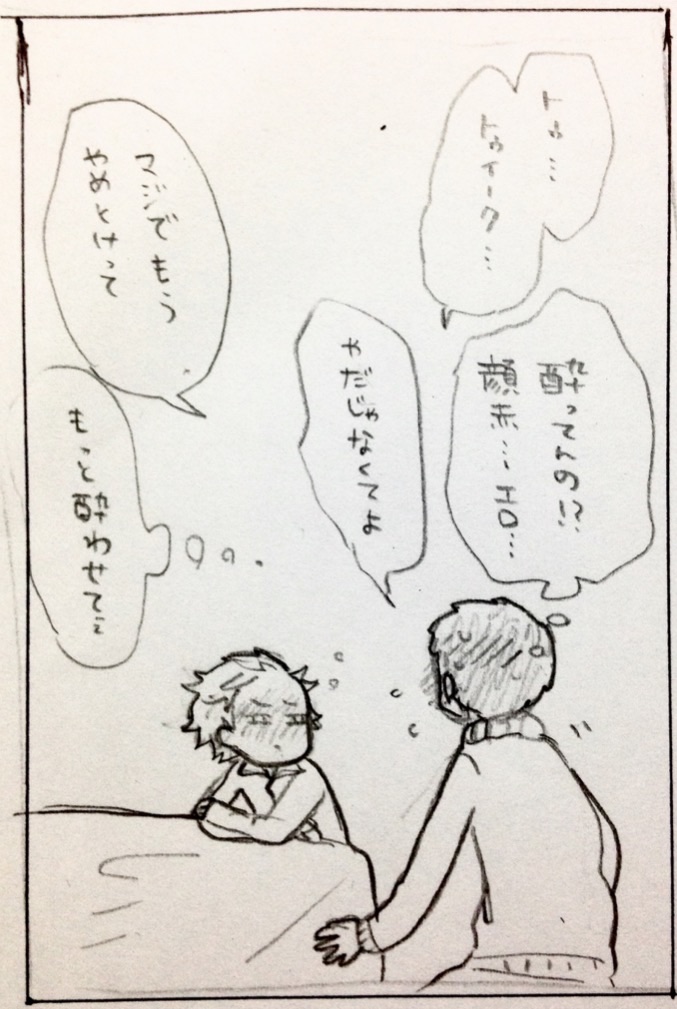 トゥ…
トゥイーク…
酔ってんの!?
顔赤…エロ…
やだじゃなくてよ
マジでもう
やめとけって
もっと酔わせてぇ